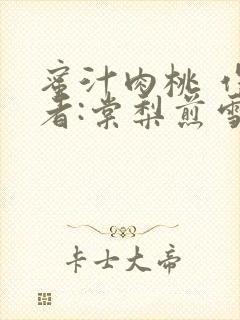 蜜汁肉桃 作
者:棠梨煎雪
卡士大帝